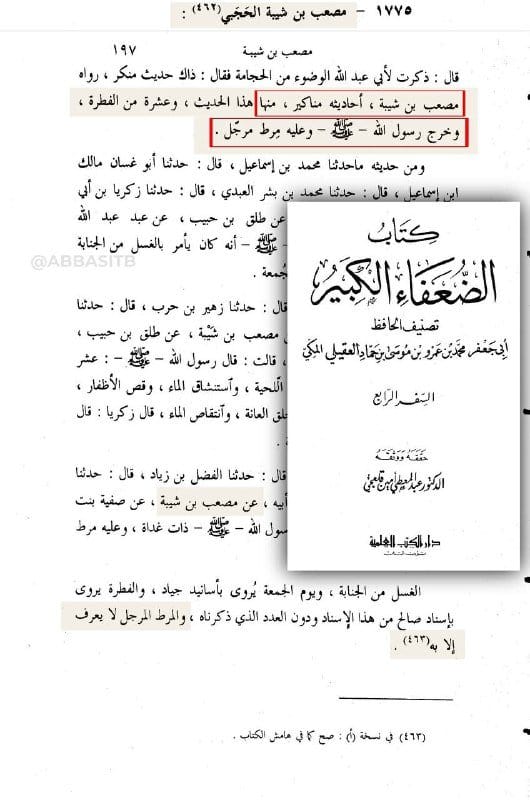 ١٧٧٥ – مصعب بن شيبة الحَجَبي(٤٦٢) :
مصعب بن شيبة
١٩٧
قال : ذكرت لأبي عبد الله الوضوء من الحجامة فقال : ذاك حديث منكر ، رواه
مصعب بن شيبة ، أحاديثه مناكير ، منها هذا الحديث ، وعشرة من الفطرة ،
وخرج رسول الله – ﷺ – وعليه مِرط مرجّل .
ومن حديثه ماحدثنا محمد بن إسماعيل ، قال : حدثنا أبو غسان مالك
ابن إسماعيل ، قال : حدثنا محمد بن بشر العبدي ، قال : حدثنا زكريا بن أبي
عن طلق بن حبيب ، عن عبد عبد الله
– ﷺ – أنه كان يأمر بالغسل من الجنابة
@ABBASITB
ُمعة .
قال : حدثنا زهير بن حرب ، قال : حدثنا
مصعب بن شَيْبة ، عن طلق بن حبيب ،
، قالت : قال رسول الله – ﷺ – : عشر
اللّحية ، وآستنشاق الماء ، وقص الأظفار ،
حلق العانة ، وآنتقاص الماء ، قال زكريا : قال
.
قال : حدثنا الفضل بن زياد ، قال : حدثنا
أبيه ، عن مصعب بن شيبة ، عن صفية بنت
رسول الله – ﷺ – ذات غداة ، وعليه مرط
الغسل من الجنابة ، ويوم الجمعة يُروى بأسانيد جياد ، والفطرة يروى
بإسناد صالح من هذا الإسناد ودون العدد الذي ذكرناه ، والمرط المرجل لا يعرف
إلا به(٤٦٣) .
(٤٦٣) في نسخة (أ) : صح كما في هامش الكتاب .
كتاب
الضعفاء الكبير
تصنيف الحافظ
أبي جعفر محمد بن عمرو بن موسى بن حماد العقيلي المكي
السفر الرابع
حققه ووثقه
الدكتور عبد المعطي أمين قلعجي
دار الكتب العلمية